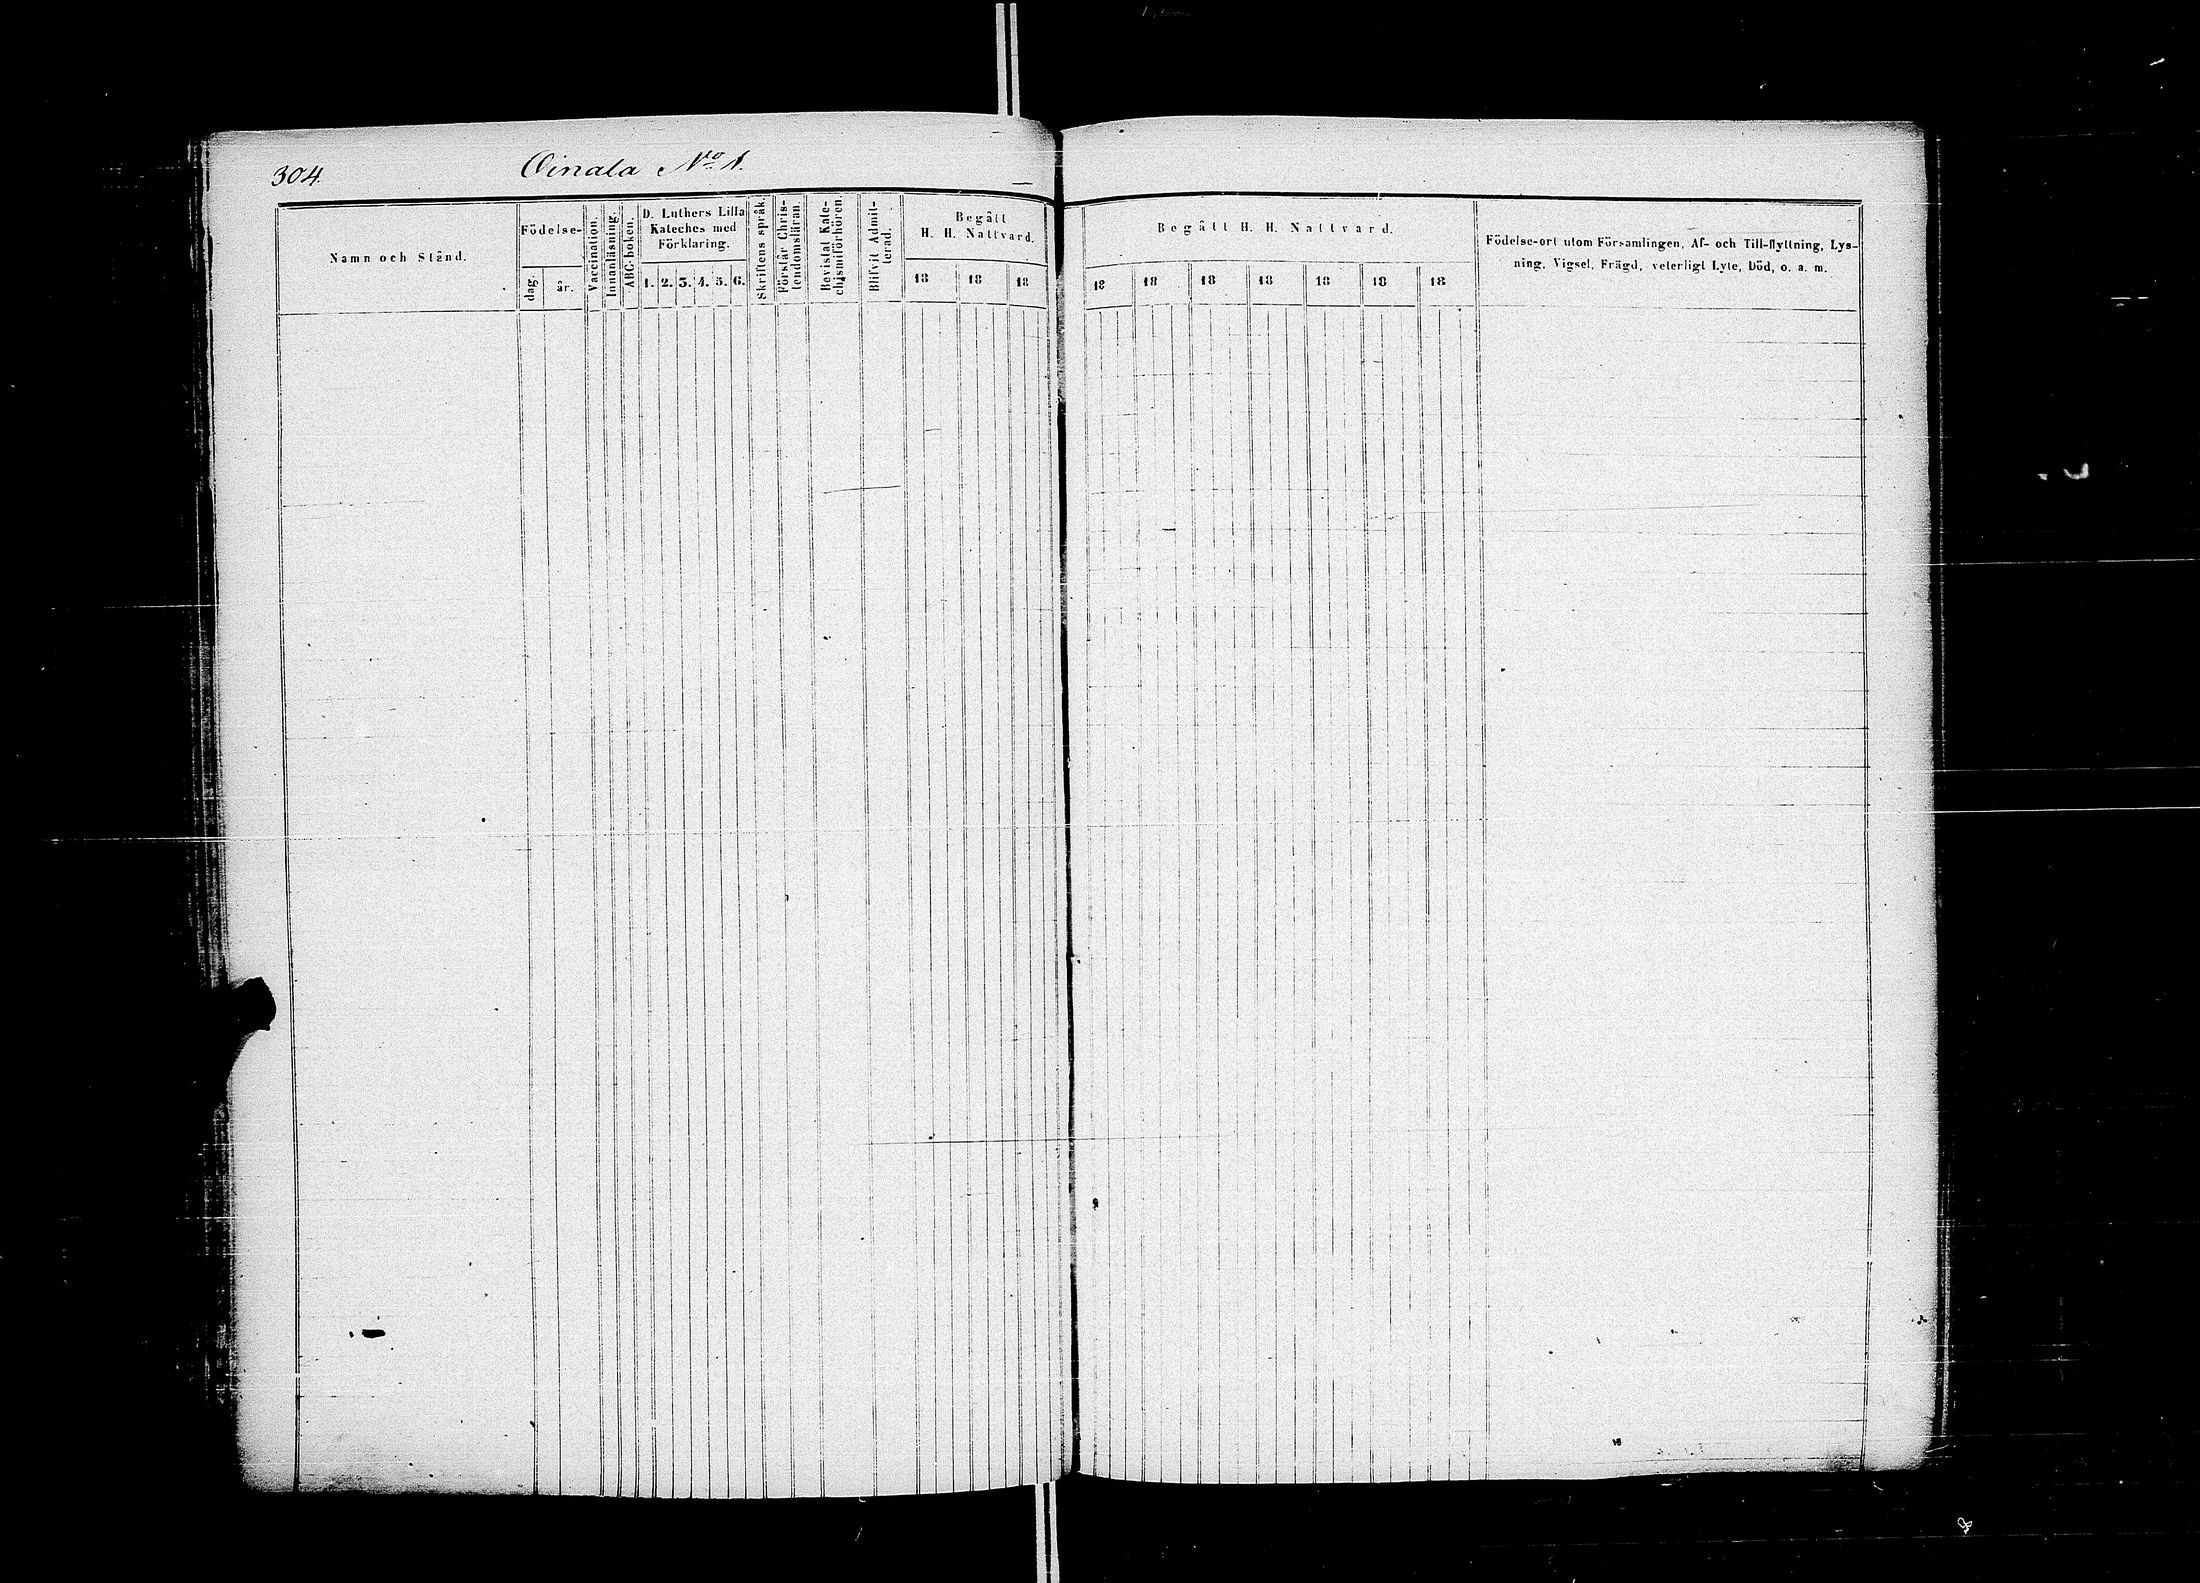 304.
Oinala No 1.
Namn och Stånd.
Födelse-
dag.
år.
Vaccination.
Innanläsning.
ABC-boken.
D. Luthers Lilla
Kateches med
Förklaring.
1. 2. 3. 4. 5. 6.
Skriftens språk.
Förstår Chris-
tendomsläran.
Bevistat Kate-
chismiförhören.
Blifvit Admit-
terad.
Begått
H. H. Nattvard.
18 18 18
Begått H. H. Nattvard.
18 18 18 18 18 18 18
Födelse-ort utom Församlingen, Af- och Till-flyttning, Lys-
ning, Vigsel, Frägd, veterligt Lyte, Död, o. a. m.